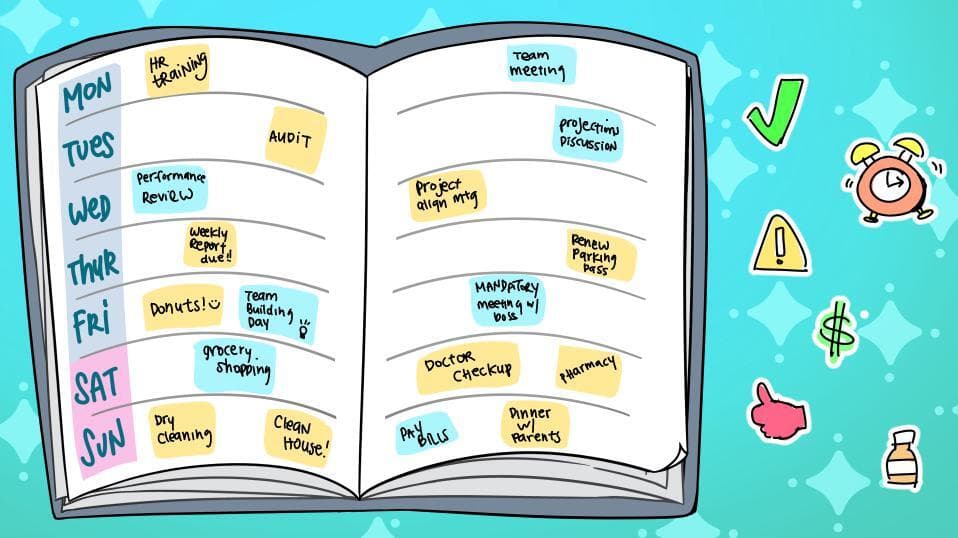 MON
HR
training
Team
meeting
TUES
AUDIT
projections
DISCUSSION
WED
performance
Review
Project
align mtg
THUR
Weekly
Report
due!!
Renew
Parking
pass
FRI
Donuts!
Team
Building
Day
MANDATORY
meeting w/
boss
SAT
grocery
shopping
DOCTOR
CHECKUP
pharmacy
SUN
Dry
Cleaning
Clean
House!
PAY
BILLS
Dinner
w/
Parents
!
$